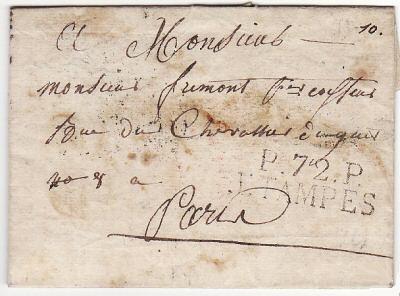 A Monsieur 10.
monsieur frimont
Rue du Chevallier du guet
no 8 a
P.72.P.
ETAMPES
Paris